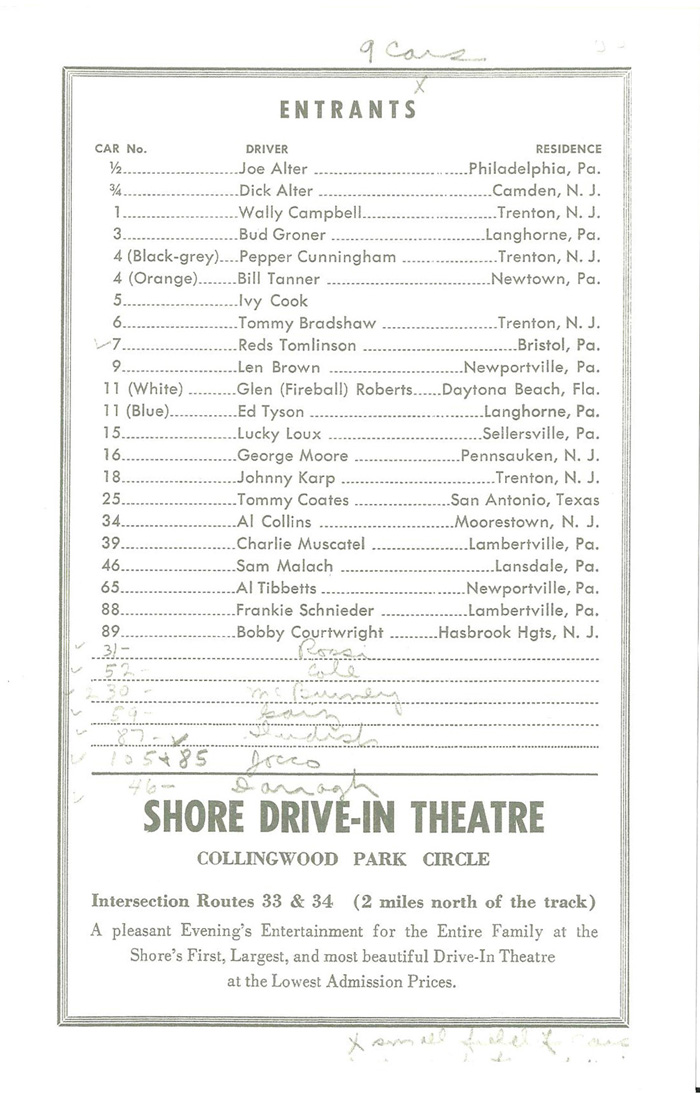 9 Cars
x
ENTRANTS
CAR No. DRIVER RESIDENCE
½ Joe Alter Philadelphia, Pa.
¾ Dick Alter Camden, N. J.
1 Wally Campbell Trenton, N. J.
3 Bud Groner Langhorne, Pa.
4 (Black-grey) Pepper Cunningham Trenton, N. J.
4 (Orange) Bill Tanner Newtown, Pa.
5 Ivy Cook
6 Tommy Bradshaw Trenton, N. J.
7 Reds Tomlinson Bristol, Pa.
9 Len Brown Newportville, Pa.
11 (White) Glen (Fireball) Roberts Daytona Beach, Fla.
11 (Blue) Ed Tyson Langhorne, Pa.
15 Lucky Loux Sellersville, Pa.
16 George Moore Pennsauken, N. J.
18 Johnny Karp Trenton, N. J.
25 Tommy Coates San Antonio, Texas
34 Al Collins Moorestown, N. J.
39 Charlie Muscatel Lambertville, Pa.
46 Sam Malach Lansdale, Pa.
65 Al Tibbetts Newportville, Pa.
88 Frankie Schnieder Lambertville, Pa.
89 Bobby Courtwright Hasbrook Hgts, N. J.
31- Rossi
52- Cole
230- McBurney
59-
87-
105 + 85 Jocco
46- Darragh
SHORE DRIVE-IN THEATRE
COLLINGWOOD PARK CIRCLE
Intersection Routes 33 & 34 (2 miles north of the track)
A pleasant Evening's Entertainment for the Entire Family at the
Shore's First, Largest, and most beautiful Drive-In Theatre
at the Lowest Admission Prices.
x small field of cars